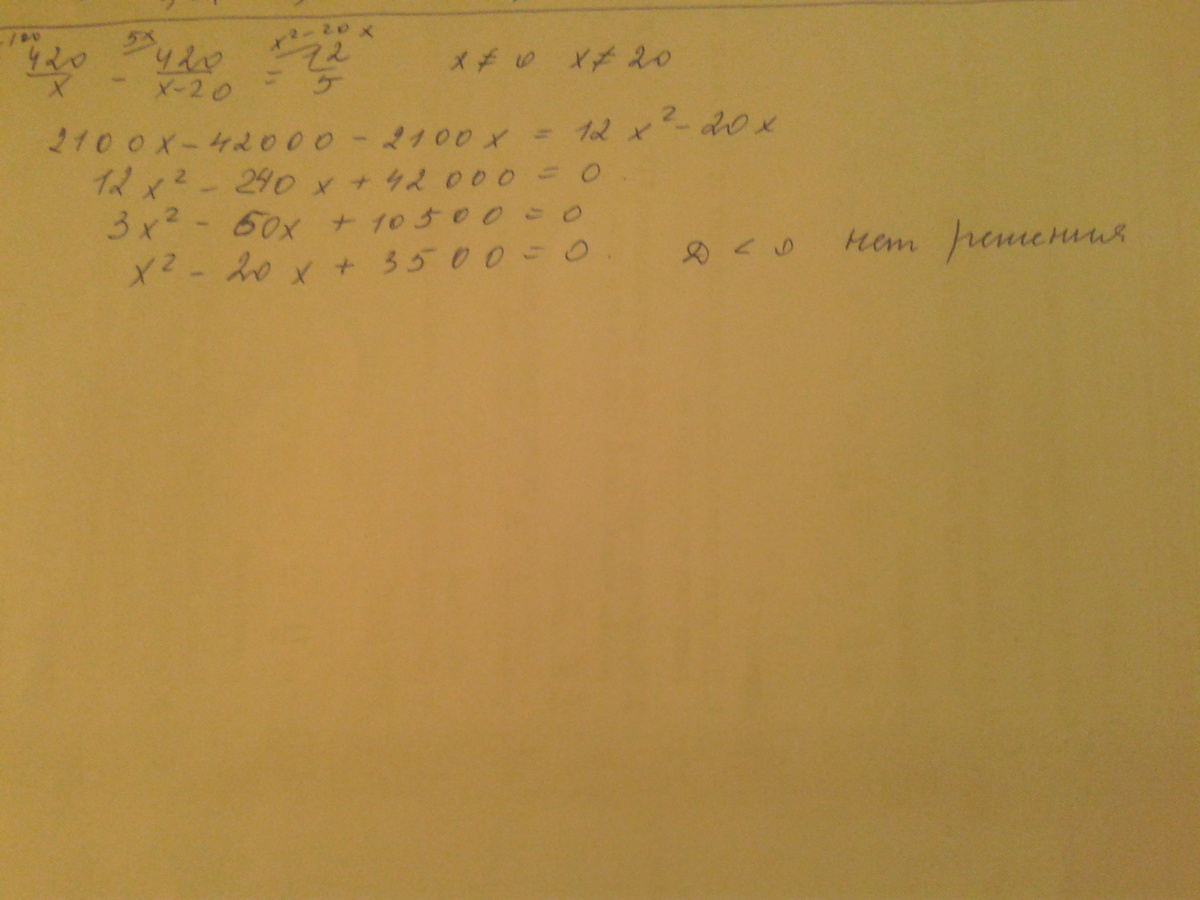 -100 5x x²-20x
420/x - 420/x-20 = 12/5 x≠0 x≠20
2100x-42000-2100x = 12x²-20x
12x²-240x+42000=0.
3x²-60x+10500=0
x²-20x+3500=0. D<0 нет решения